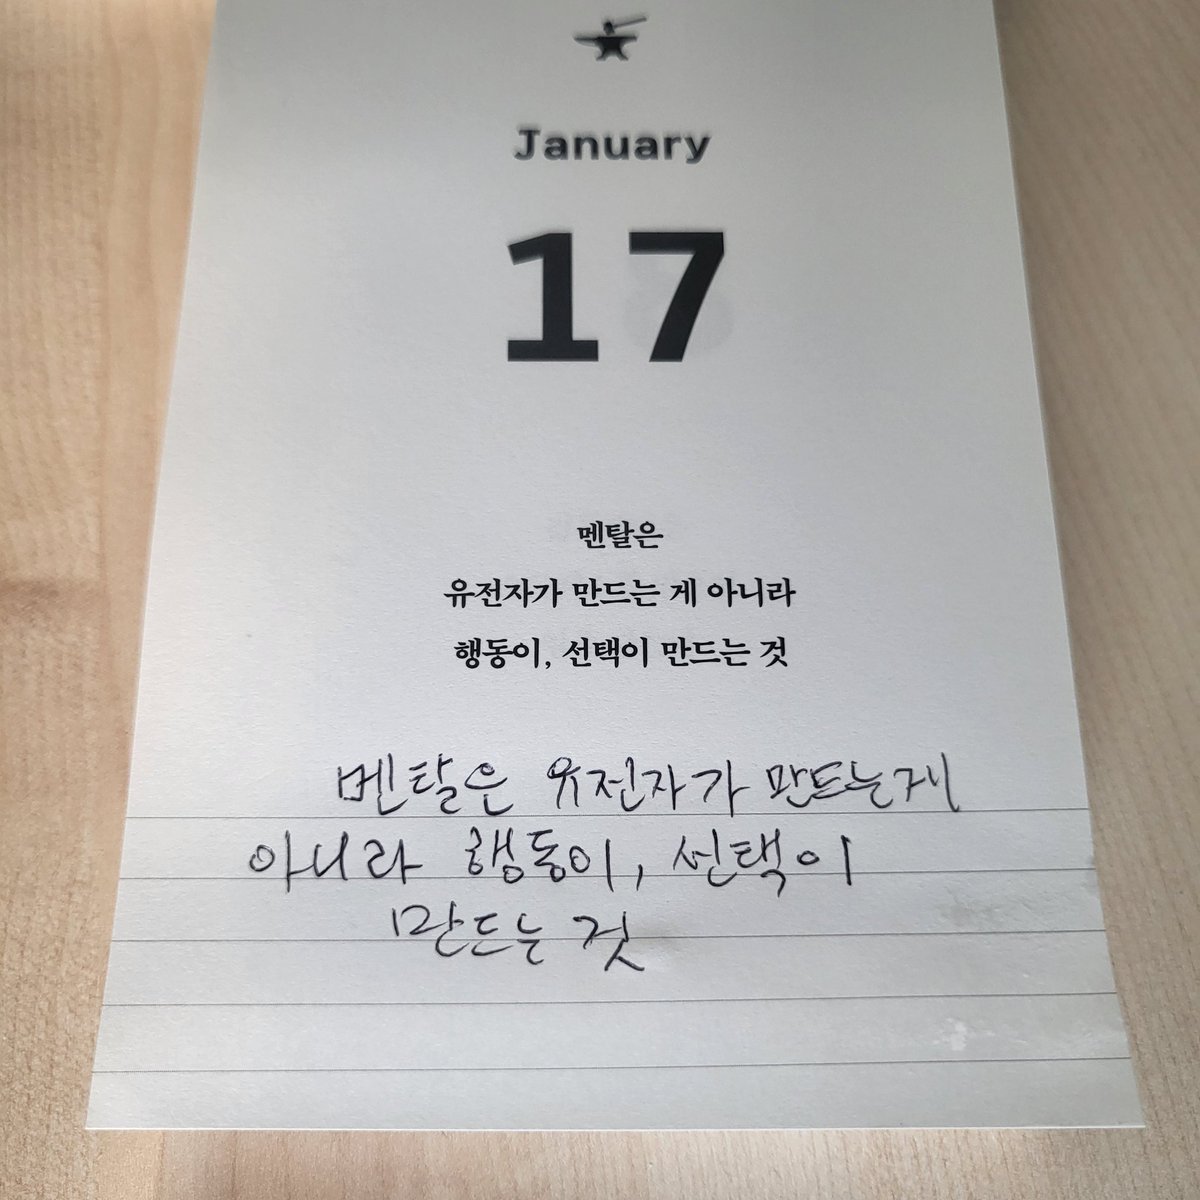 January
17
멘탈은
유전자가 만드는 게 아니라
행동이, 선택이 만드는 것
멘탈은 유전자가 만드는게
아니라 행동이, 선택이
만드는 것